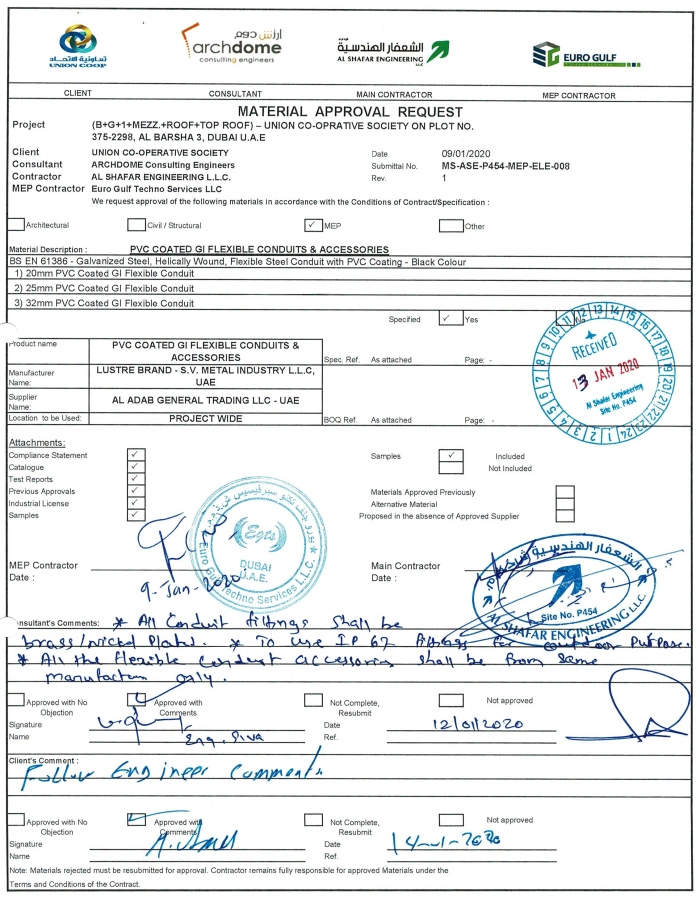 تعاونية الاتحاد
UNION COOP
ارتش دوم
archdome
consulting engineers
الشعفار الهندسية
AL SHAFAR ENGINEERING LLC
EURO GULF
CLIENT CONSULTANT MAIN CONTRACTOR MEP CONTRACTOR
MATERIAL APPROVAL REQUEST
Project (B+G+1+MEZZ.+ROOF+TOP ROOF) – UNION CO-OPRATIVE SOCIETY ON PLOT NO.
375-2298, AL BARSHA 3, DUBAI U.A.E
Client UNION CO-OPERATIVE SOCIETY Date 09/01/2020
Consultant ARCHDOME Consulting Engineers Submittal No. MS-ASE-P454-MEP-ELE-008
Contractor AL SHAFAR ENGINEERING L.L.C. Rev. 1
MEP Contractor Euro Gulf Techno Services LLC
We request approval of the following materials in accordance with the Conditions of Contract/Specification :
Architectural Civil / Structural ✓ MEP Other
Material Description : PVC COATED GI FLEXIBLE CONDUITS & ACCESSORIES
BS EN 61386 - Galvanized Steel, Helically Wound, Flexible Steel Conduit with PVC Coating - Black Colour
1) 20mm PVC Coated GI Flexible Conduit
2) 25mm PVC Coated GI Flexible Conduit
3) 32mm PVC Coated GI Flexible Conduit
Specified ✓ Yes
RECEIVED
13 JAN 2020
Al Shafar Engineering
Site No. P454
Product name PVC COATED GI FLEXIBLE CONDUITS &
ACCESSORIES Spec. Ref. As attached Page: -
Manufacturer
Name: LUSTRE BRAND - S.V. METAL INDUSTRY L.L.C,
UAE
Supplier
Name: AL ADAB GENERAL TRADING LLC - UAE
Location to be Used: PROJECT WIDE BOQ Ref. As attached Page: -
Attachments:
Compliance Statement ✓ Samples ✓ Included
Catalogue ✓ Not Included
Test Reports ✓
Previous Approvals ✓ Materials Approved Previously
Industrial License ✓ Alternative Material
Samples ✓ Proposed in the absence of Approved Supplier
Egts
DUBAI
U.A.E.
Euro Gulf Techno Services L.L.C.
MEP Contractor Main Contractor
Date : 9-Jan-2020 Date :
الشعفار الهندسية
Site No. P454
AL SHAFAR ENGINEERING LLC.
nsultant's Comments: * All Conduit fittings shall be
brass/nickel plated. * To use IP 67 fittings for outdoor purpose.
* All the flexible conduit accessories shall be from same
manufacturer only.
Approved with No
Objection Approved with
Comments Not Complete,
Resubmit Not approved
Signature Date 12/01/2020
Name Eng. Siva Ref.
Client's Comment :
Follow Engineer Comments
Approved with No
Objection Approved with
Comments Not Complete,
Resubmit Not approved
Signature Date 14-1-2020
Name Ref.
Note: Materials rejected must be resubmitted for approval. Contractor remains fully responsible for approved Materials under the
Terms and Conditions of the Contract.